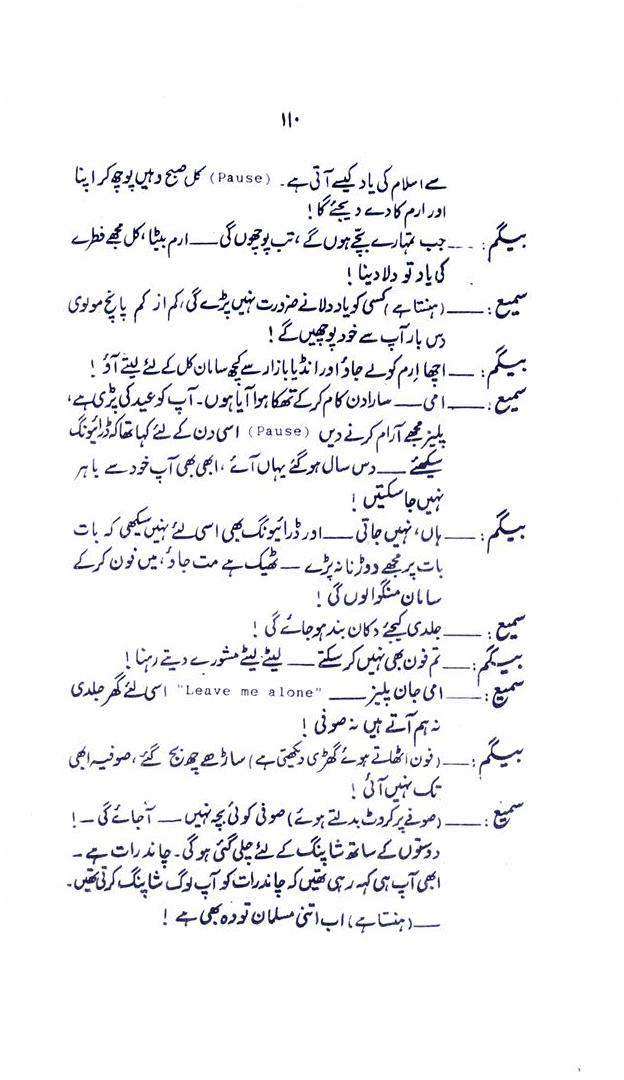 ۱۱۰
سے اسلام کی یاد کیسے آتی ہے۔ (Pause) کل صبح وہیں پوچھ کر اپنا
اور ارم کا دے دیجئے گا!
بیگم: ـــ جب تمہارے بچے ہوں گے، تب پوچھوں گی ـــ ارم بیٹا، کل مجھے فطرے
کی یاد تو دلا دینا!
سمیع: ـــ (ہنستا ہے) کسی کو یاد دلانے ضرورت نہیں پڑے گی، کم از کم پانچ مولوی
دس بار آپ سے خود پوچھیں گے!
بیگم: ـــ اچھا ارم کو لے جاؤ اور انڈیا بازار سے کچھ سامان کل کے لئے لیتے آؤ!
سمیع: ـــ امی ـــ سارا دن کام کر کے تھکا ہوا آیا ہوں۔ آپ کو عید کی پڑی ہے،
پلیز مجھے آرام کرنے دیں (Pause) اسی دن کے لئے کہا تھا کہ ڈرائیونگ
سیکھئے ـــ دس سال ہو گئے یہاں آئے، ابھی بھی آپ خود سے باہر
نہیں جا سکتیں!
بیگم: ـــ ہاں، نہیں جاتی ـــ اور ڈرائیونگ بھی اسی لئے نہیں سیکھی کہ بات
بات پر مجھے دوڑنا نہ پڑے ـــ ٹھیک ہے مت جاؤ، میں فون کر کے
سامان منگوا لوں گی!
سمیع: ـــ جلدی کیجئے دکان بند ہو جائے گی!
بیگم: ـــ تم فون بھی نہیں کر سکتے ـــ لیٹے لیٹے مشورے دیتے رہنا!
سمیع: ـــ امی جان پلیز ـــ "Leave me alone" اسی لئے گھر جلدی
نہ ہم آتے ہیں نہ صوفی!
بیگم: ـــ (فون اٹھاتے ہوئے گھڑی دیکھتی ہے) ساڑھے چھ بج گئے، صوفیہ ابھی
تک نہیں آئی!
سمیع: ـــ (صوفے پر کروٹ بدلتے ہوئے) صوفی کوئی بچہ نہیں ـــ آجائے گی ـ!
دوستوں کے ساتھ شاپنگ کے لئے چلی گئی ہو گی۔ چاند رات ہے ـ
ابھی آپ ہی کہہ رہی تھیں کہ چاند رات کو آپ لوگ شاپنگ کرتی تھیں۔
ـــ (ہنستا ہے) اب اتنی مسلمان تو وہ بھی ہے!